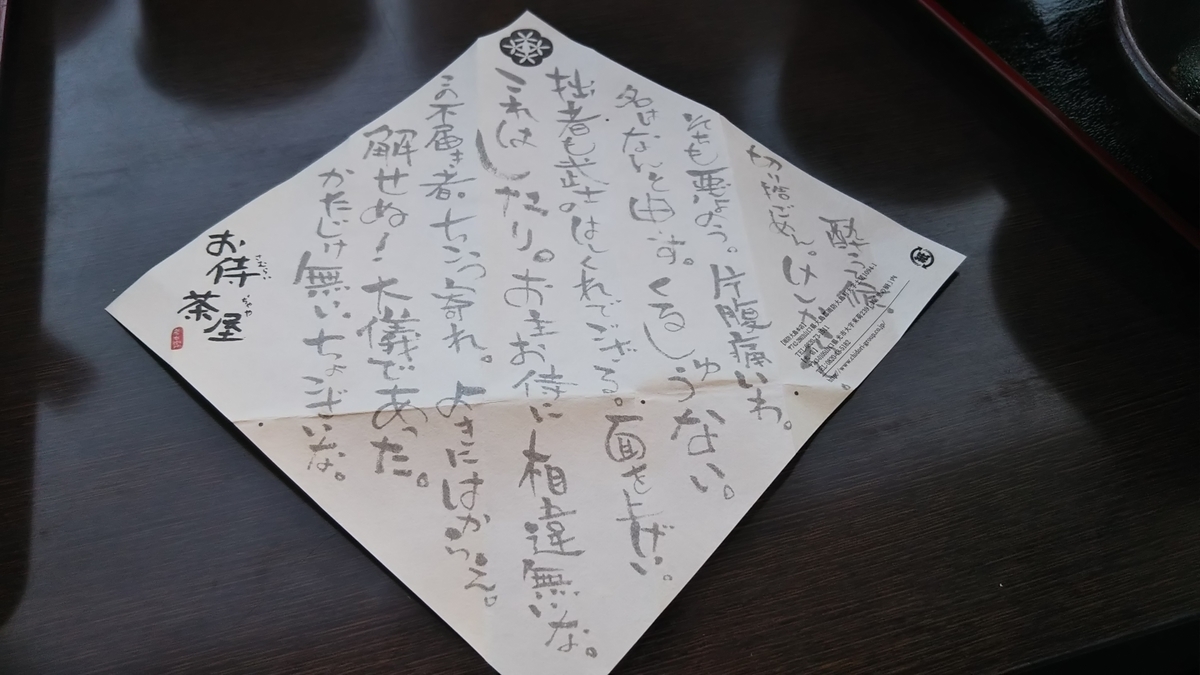 切り捨ごめん。
そちも悪よのう。片腹痛いわ。
名はなんと申す。くるしゅうない。
拙者も武士のはしくれでござる。面を上げい。
これはしたり。お主お侍に相違無いな。
この不届き者。ちこう寄れ。よきにはからえ。
解せぬ！大儀であった。
かたじけ無い。ちょこざいな。
お侍茶屋